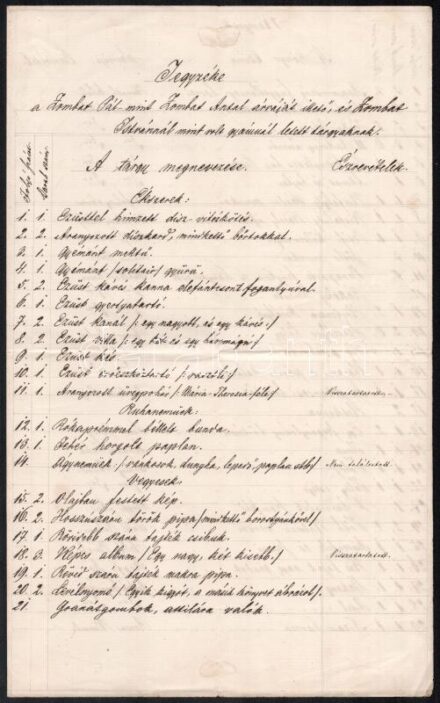 Jegyzéke
a Zombat Pál mint Zombat Antal árváját illető, és Zombat
Istvánnál mint volt gyámnál letett tárgyaknak.
Folyó szám.
Darab szám.
A tárgy megnevezése.
Észrevételek.
Ékszerek:
1. 1. Ezüsttel hímzett dísz
2. 2. Aranyozott díszkard, mindkettő bőrtokkal.
3. 1. Gyémánt melltű.
4. 1. Gyémánt /solitair/ gyűrű.
5. 2. Ezüst kávés kanna elefántcsont fogantyúval.
6. 1. Ezüst gyertyatartó.
7. 2. Ezüst kanál /: egy nagyobb, és egy kávés :/
8. 2. Ezüst villa /: egy
9. 1. Ezüst kés.
10. 1. Ezüst
11. 1. Aranyozott üvegpohár /Mária Theresia-féle/
Ruhaneműek:
12. 1. Rókaprémmel béllelt bunda.
13. 1. Fehér horgolt paplan.
14. Ágyneműek /vánkosok, dunyha, lepedő, paplan stb/ Nem találtatott.
Vegyesek.
15. 2. Olajban festett kép.
16. 2. Hosszúszárú török pipa /mindkettő borostyánkővel/
17. 1. Rövidebb szárú tajték csibuk.
18. 3. Képes album /Egy nagy, két kisebb./
19. 1. Rövid szárú tajték makra pipa.
20. 2. Levélnyomó /Egyik kígyót, a másik könyvet ábrázol/.
21. Gránátgombok, attilára valók.